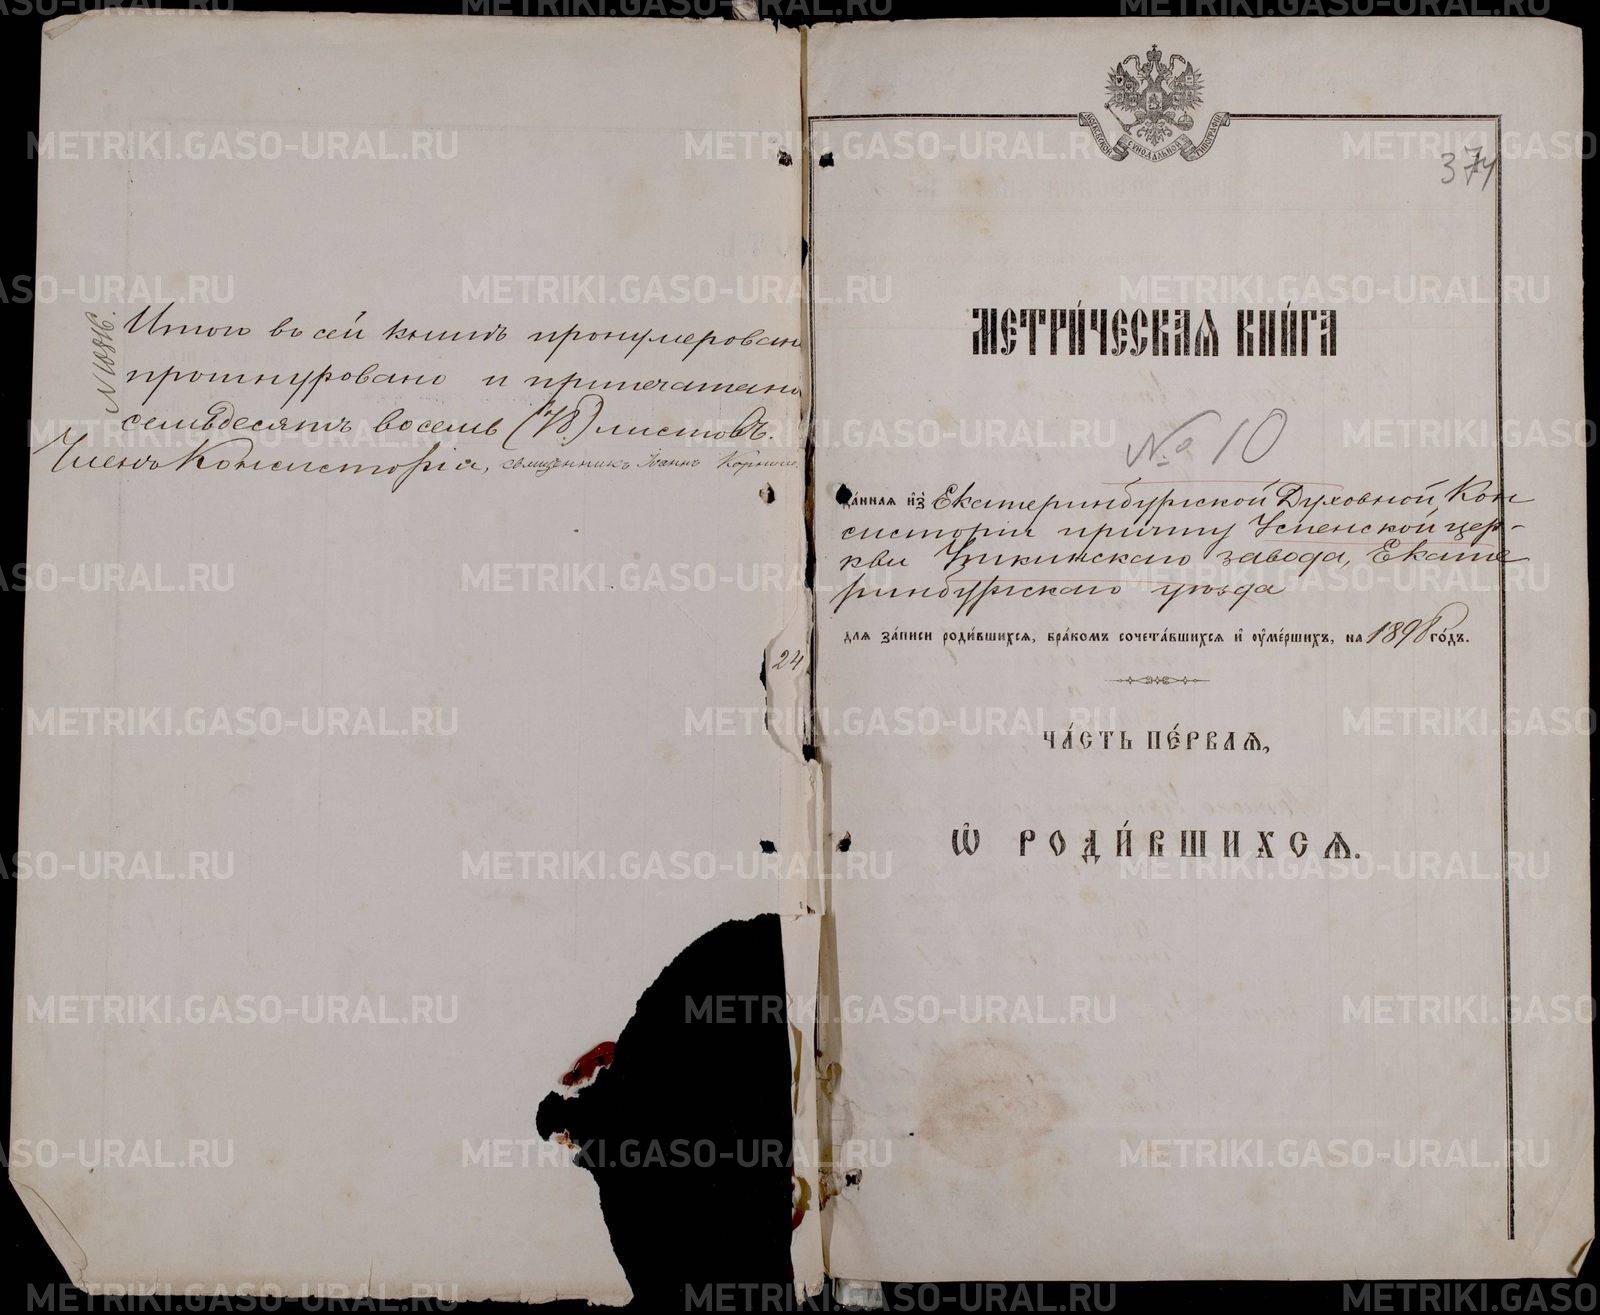 № 10816.
Итого въ сей книгѣ пронумеровано
прошнуровано и припечатано
семьдесятъ восемь (78) листовъ.
Членъ Консисторіи, священникъ Іоаннъ
24
СУНОДАЛЬНОЙ ТИПОГРАФІИ
374
МЕТРИ́ЧЕСКАѦ КНИ́ГА
№ 10
да́нная и҆з̾ Екатеринбургской Духовной Кон
систоріи причту Успенской цер-
кви Уткинскаго завода, Екате
ринбургскаго уѣзда
для за́писи роди́вшихся, бра́комъ сочета́вшихся и҆ оу҆ме́ршихъ, на 1898 го́дъ.
ЧА́СТЬ ПЕ́РВАѦ,
Ѽ РОДИ́ВШИХСѦ.
METRIKI.GASO-URAL.RU